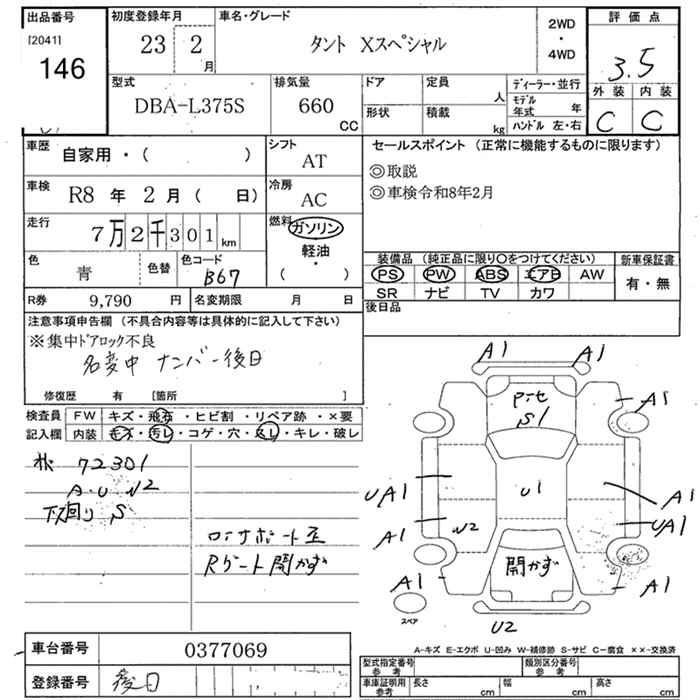 出品番号
[2041]
146
初度登録年月
23 2
月
車名・グレード
タント Xスペシャル
2WD
・
4WD
評価点
3.5
外装 内装
C C
型式
DBA-L375S
排気量
660
CC
ドア
形状
定員
人
積載
kg
ディーラー・並行
モデル
年式
年
ハンドル 左・右
車歴
自家用・( )
シフト
AT
車検
R8 年 2 月 ( 日)
冷房
AC
走行
7万2千301km
燃料
ガソリン
軽油
・
( )
色
青
色替
色コード
B67
R券
9,790 円
名変期限
月 日
セールスポイント (正常に機能するものに限ります)
◎取説
◎車検令和8年2月
装備品 (純正品に限り〇をつけてください)
PS PW ABS エアB AW
SR ナビ TV カワ
新車保証書
有・無
後日品
注意事項申告欄 (不具合内容等は具体的に記入して下さい)
※集中ドアロック不良
名変中 ナンバー後日
修復歴 有 [箇所 ]
検査員
記入欄
FW キズ・飛石・ヒビ割・リペア跡・×要
内装 キズ・汚レ・コゲ・穴・スレ・キレ・破レ
72301
A・U W2
下廻り S
コアサポート歪
Rゲート開かず
A1
A1
A1
P・セ
S1
UA1
U1
A1
A1
W2
UA1
A1
開かず
A1
スペア
U2
A-キズ E-エクボ U-凹み W-補修跡 S-サビ C-腐食 ××-交換済
車台番号
0377069
登録番号
後日
型式指定番号
参考
類別区分番号
参考
車庫証明用
参考
長さ
cm
幅
cm
高さ
cm